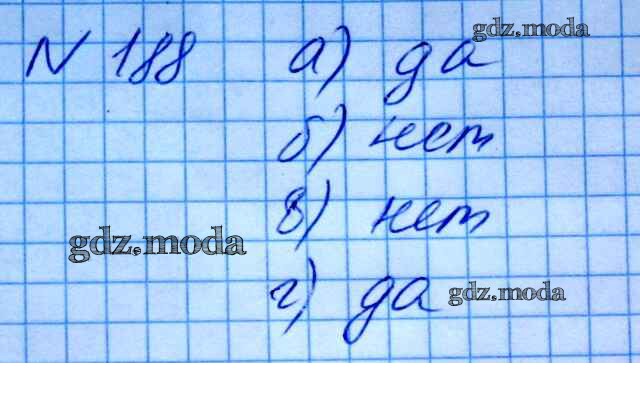 gdz.moda
N 188 а) да
б) нет
в) нет
gdz.moda
г) да gdz.moda